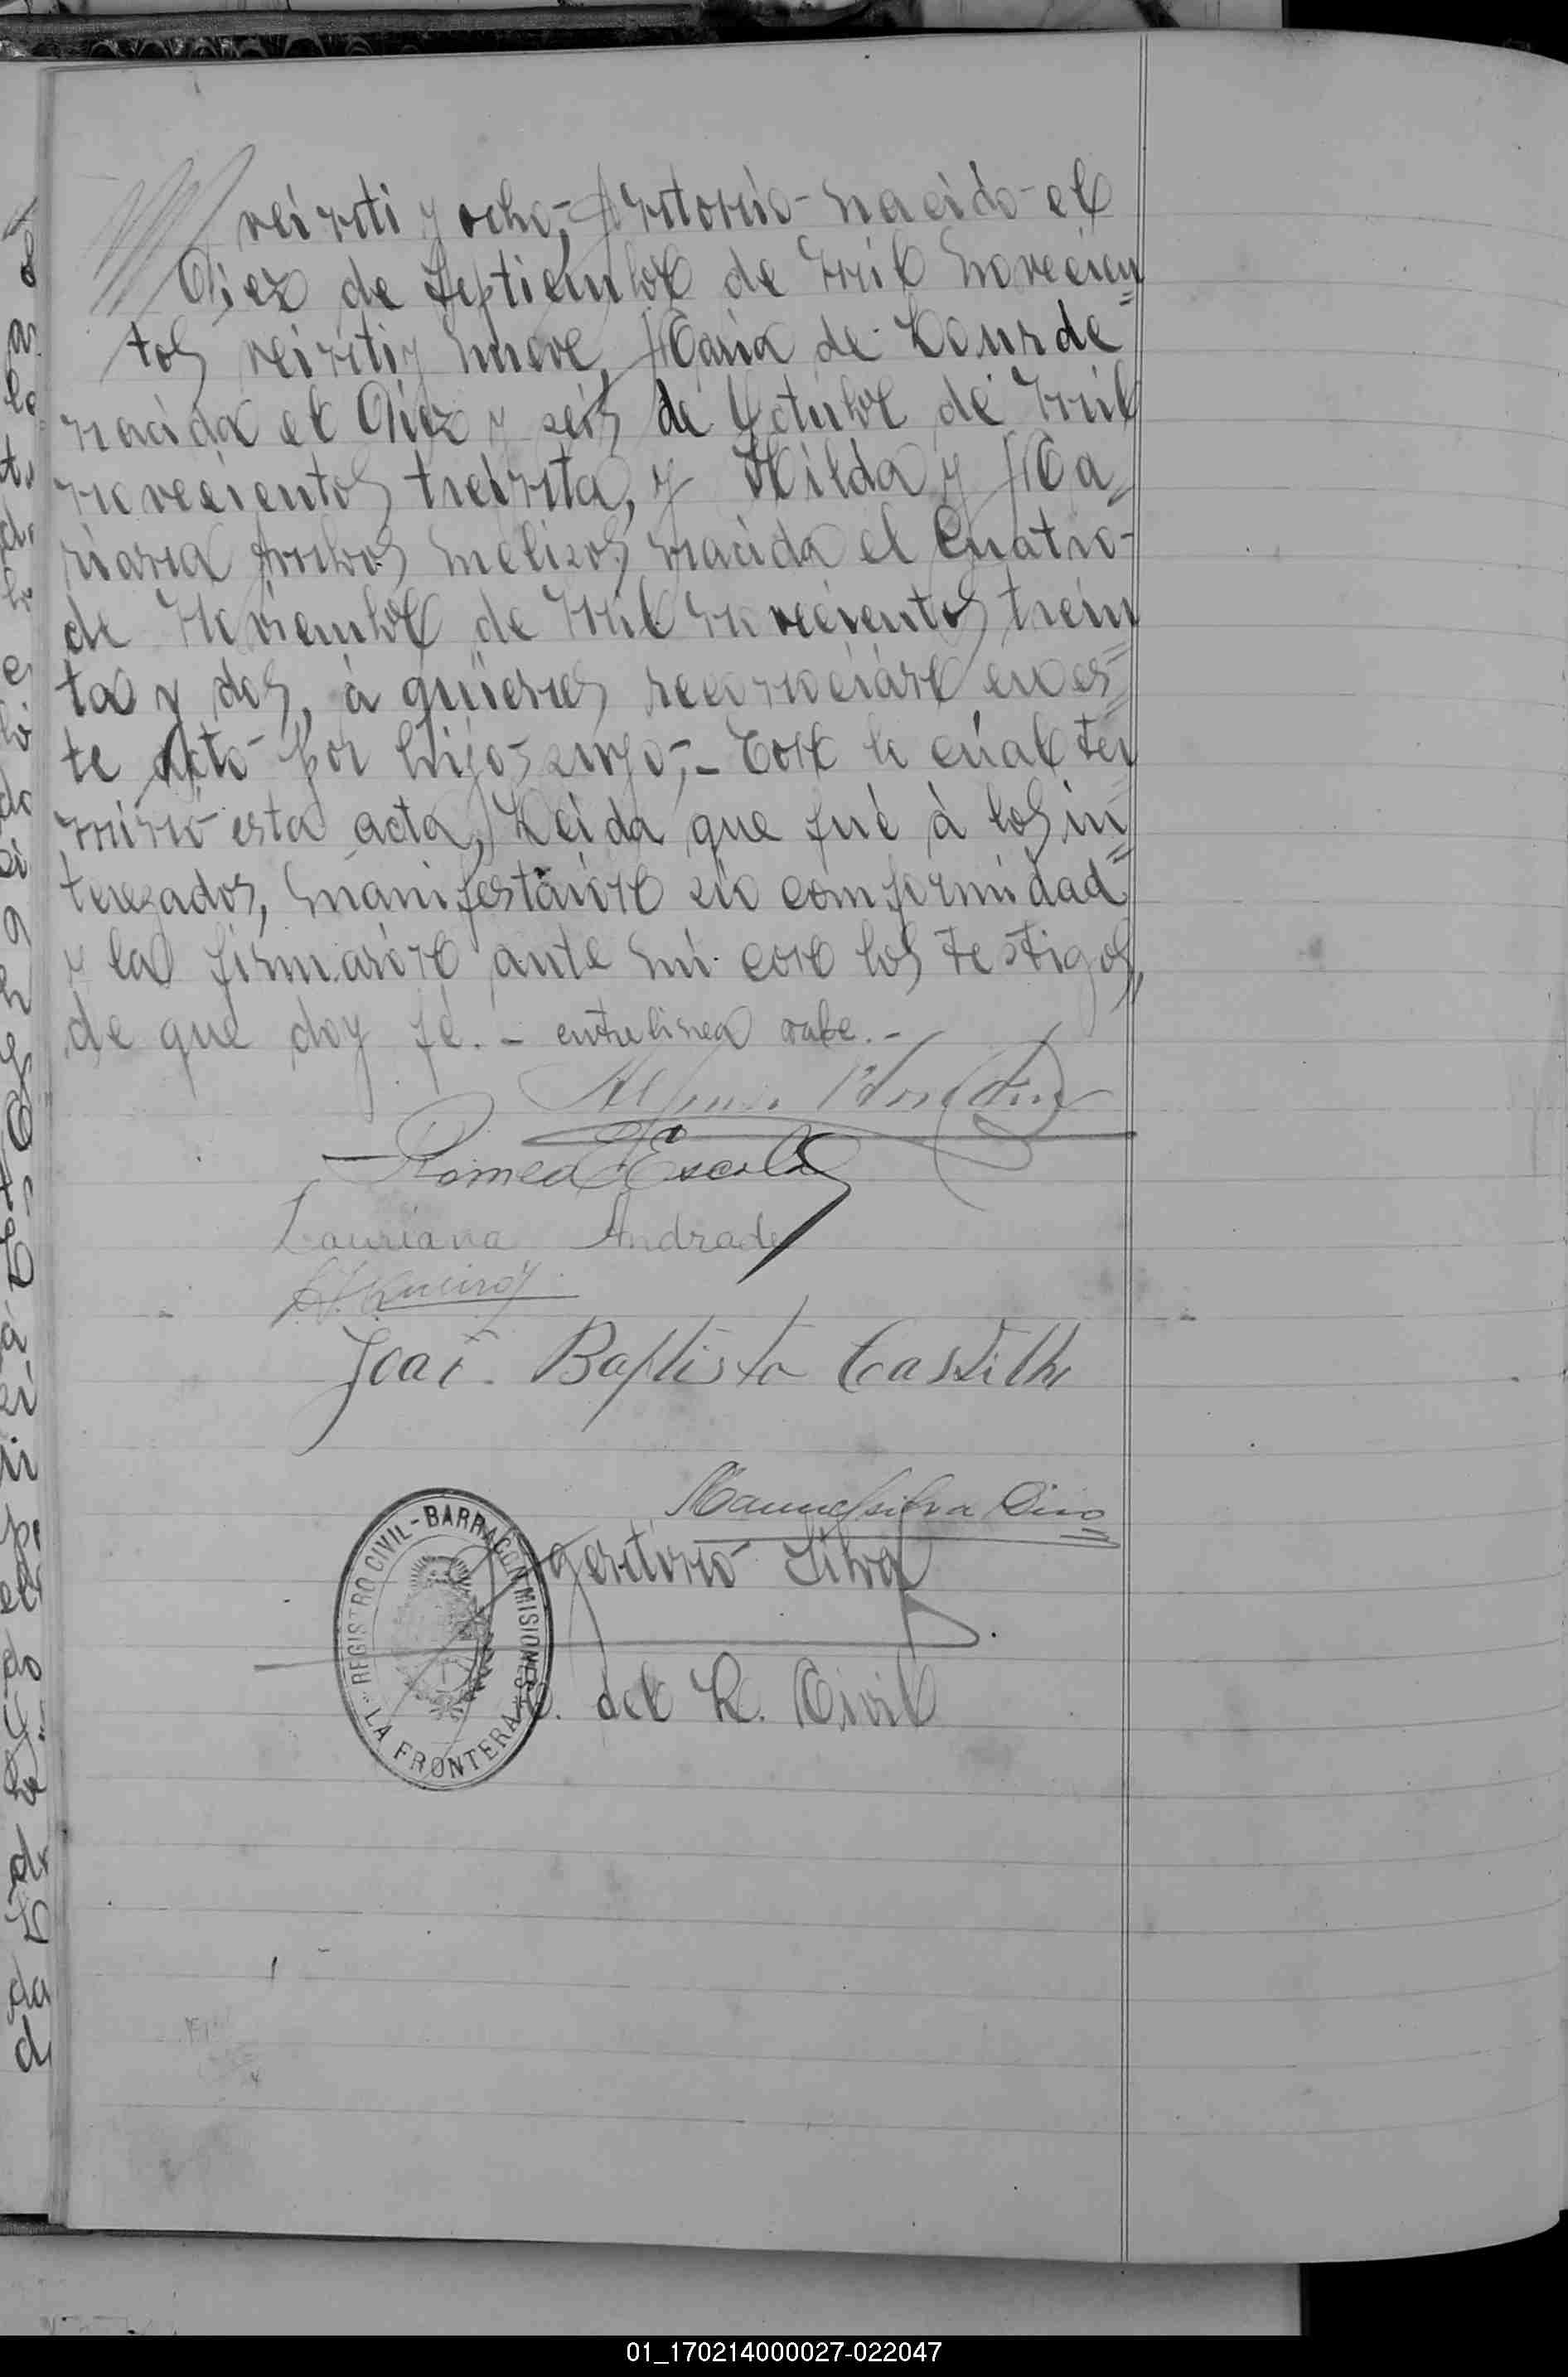 veinti y ocho,- Antonio- nacido- el
Diez de Septiembre de mil novecien=
tos veinti y nueve, Maria de Lourde=
nacida el Diez y seis de Octubre de mil
novecientos treinta, y Hilda y Ma=
riana Ambos melisos nacida el Cuatro-
de Noviembre de mil novecientos trein=
ta y dos, à quienes reconocieron en es=
te acto- por hijos suyo;- Con lo cual ter=
minó esta acta, Leida que fué à los in=
terezados, manifestaron su comformidad
y la firmaron ante mi con los testigos,
de que doy fé.- entrelinea vale.-
Romeo Escola
Lauriana Andrade
Queiroz
João Baptista Castilho
Manuel silva Dico
Silva
del R. Civil
REGISTRO CIVIL - BARRACON MISIONES
LA FRONTERA
01_170214000027-022047